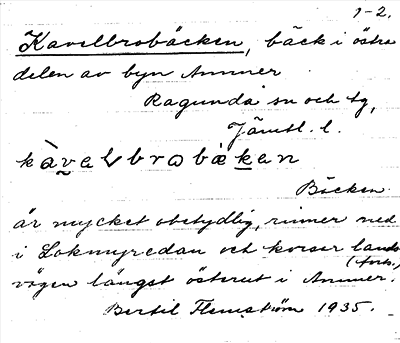 1-2.
Kavelbrobäcken, bäck i östra
delen av byn Ammer
Ragunda sn och tg,
Jämtl. l.
kàvalbrobäkan
Bäcken
är mycket obetydlig, rinner ned
i Lokmyredan och korsar lands-
(forts.)
vägen längst österut i Ammer.
Bertil Flemström 1935.